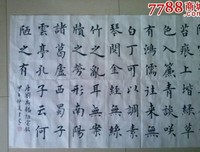 苔痕上階綠草
色入簾青談咲
有鴻儒往來無
白丁可以調素
琴閱金經無絲
竹之亂耳無案
牘之勞形南陽
諸葛廬西蜀子
雲亭孔子云何
陋之有
唐劉禹錫陋室銘
7788